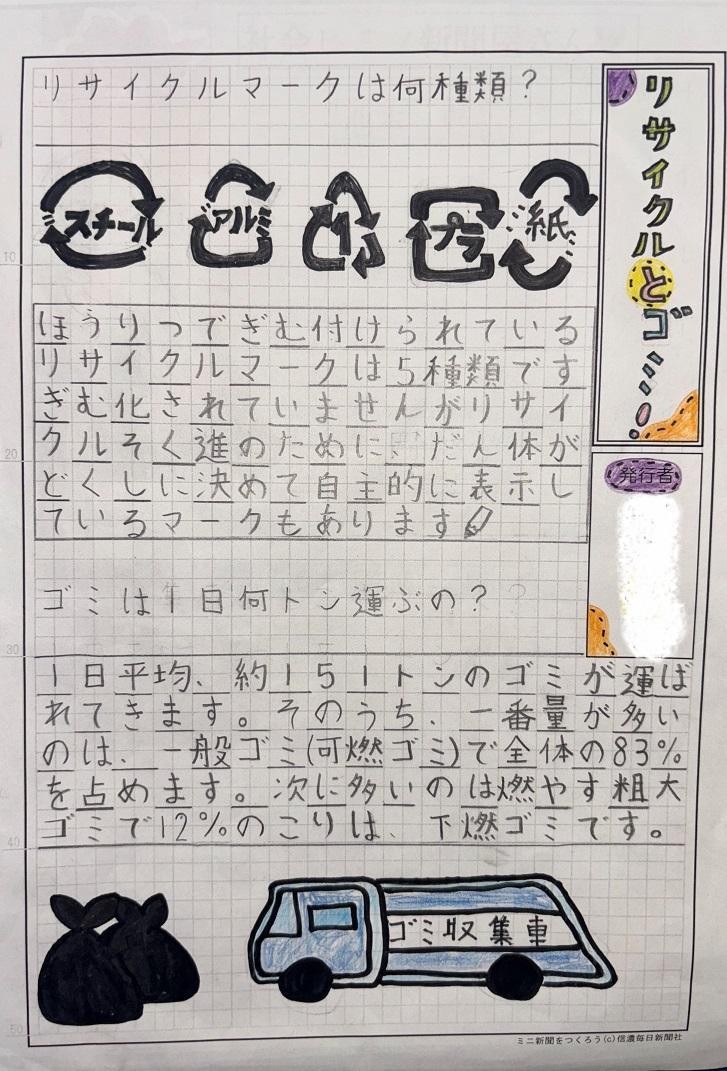 リサイクルとゴミ!
発行者
リサイクルマークは何種類?
スチール
アルミ
1
プラ
紙
ほうりつでぎむ付けられている
リサイクルマークは5種類です
ぎむ化されていませんがリサイ
クルそく進のためにだん体が
どくしに決めて自主的に表示し
ているマークもあります
ゴミは1日何トン運ぶの?
1日平均、約151トンのゴミが運ば
れてきます。そのうち、一番量が多い
のは、一般ゴミ(可燃ゴミ)で全体の83%
を占めます。次に多いのは燃やす粗大
ゴミで12%のこりは、下燃ゴミです。
ゴミ収集車
ミニ新聞をつくろう(c)信濃毎日新聞社
10
20
30
40
50